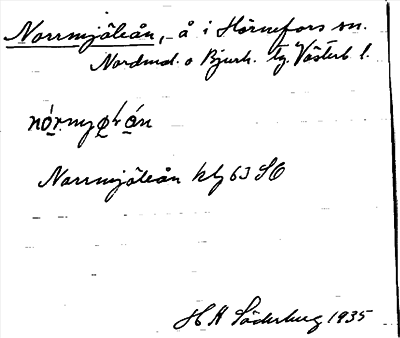 Norrmjöleån, å i Hörnefors sn.
Nordmal. o Bjurh. tg. Västerb l.
Norrmjöleån kbl 63 SO
H H Söderberg 1935